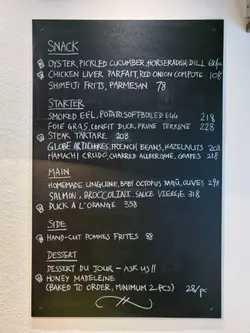 SNACK
OYSTER, PICKLED CUCUMBER, HORSERADISH, DILL 68/pc
CHICKEN LIVER PARFAIT, RED ONION COMPOTE 108
SHIMEJI FRITS, PARMESAN 78
STARTER
SMOKED EEL, POTATO, SOFTBOILED EGG 218
FOIE GRAS, CONFIT DUCK, PRUNE TERRINE 228
STEAK TARTARE 208
GLOBE ARTICHOKES, FRENCH BEANS, HAZELNUTS 208
HAMACHI CRUDO, CHARRED AUBERGINE, GRAPES 218
MAIN
HOMEMADE LINGUINE, BABY OCTOPUS RAGÙ, OLIVES 298
SALMON, BROCCOLINI, SAUCE VIERGE 318
DUCK À L'ORANGE 358
SIDE
HAND-CUT POMMES FRITES 88
DESSERT
DESSERT DU JOUR – ASK US!!
HONEY MADELEINE
(BAKED TO ORDER, MINIMUM 2 PCS) 28/pc